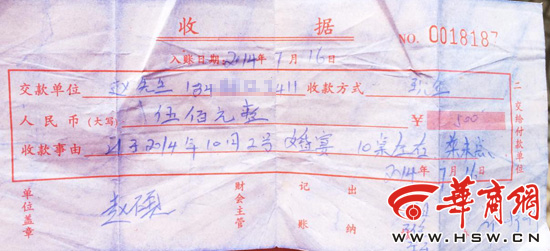 收 据
NO. 0018187
入账日期2014年7月16日
交款单位 赵先生 134 411 收款方式 现金
人民币(大写) 伍佰元整 ¥ 500
收款事由 订于2014年10月2号婚宴 10桌左右 菜未定
2014年7月16日
二交给付款单位
单位盖章 财会主管 记账 出纳
华商网
WWW.HSW.CN